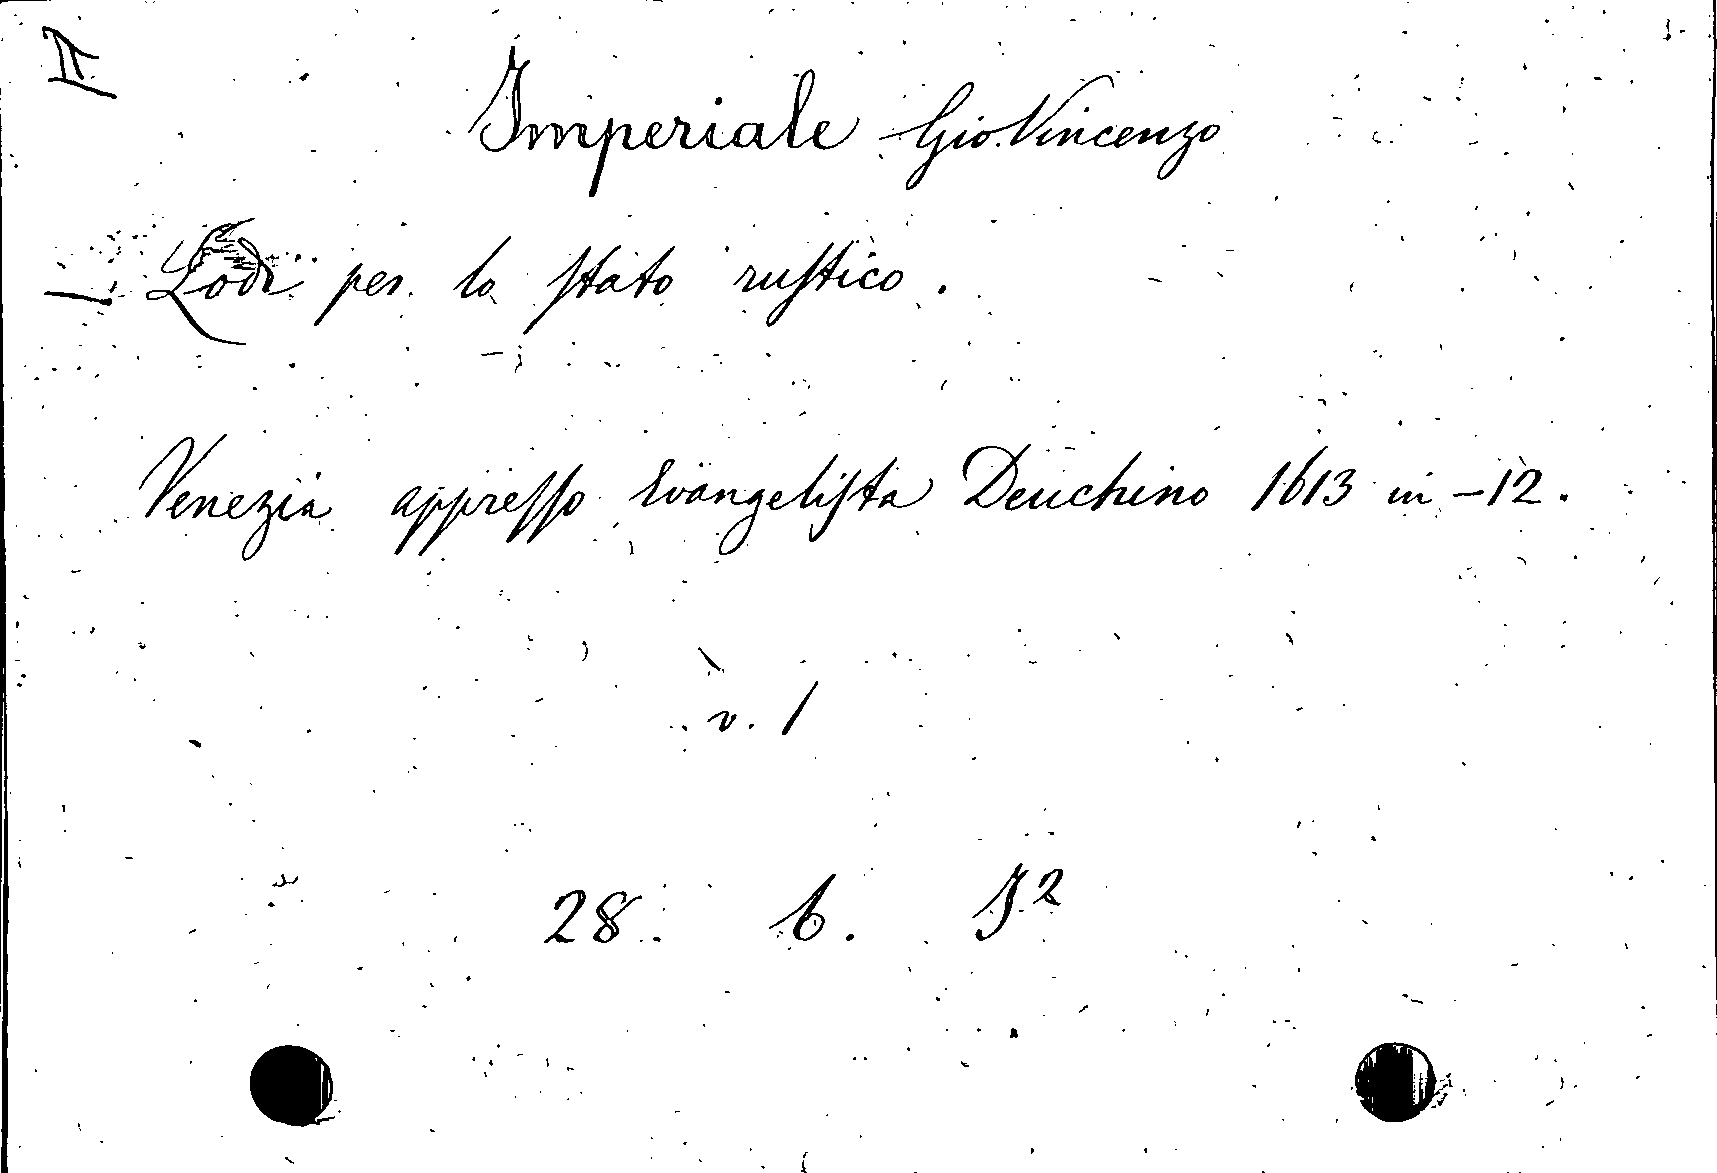 II
Imperiale Gio. Vincenzo
— Lodi per lo stato rustico.
Venezia appresso Evangelista Deuchino 1613 in -12.
v. 1
28. b. I²